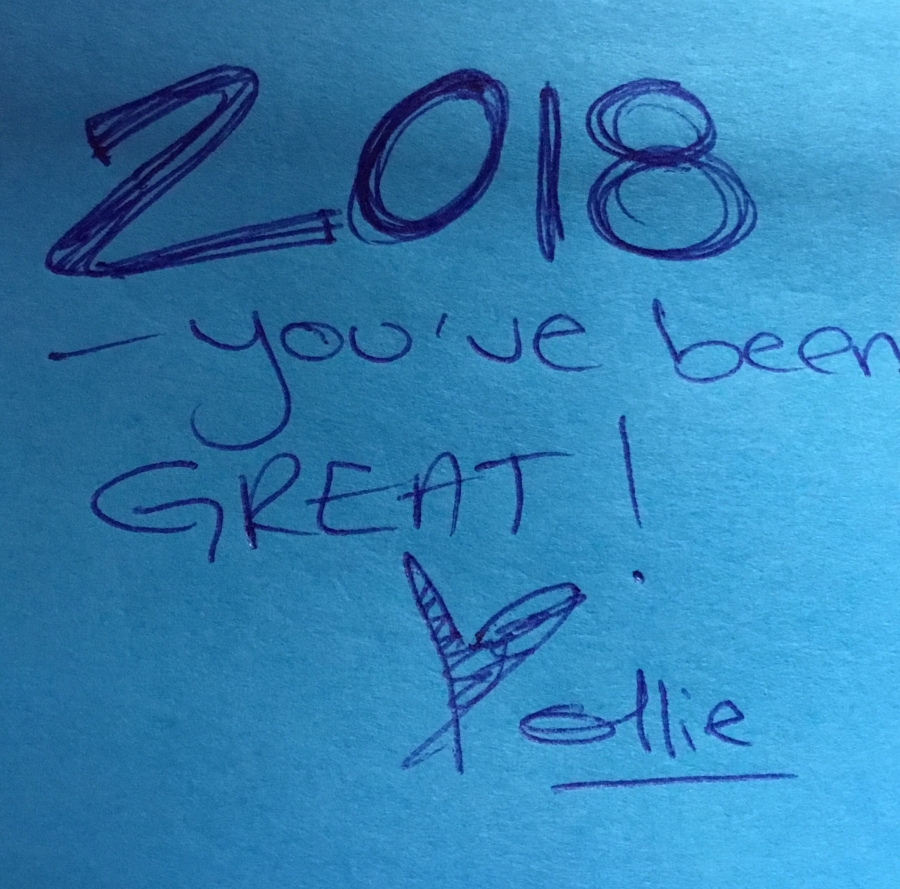 2018
- you've been
GREAT!
ollie